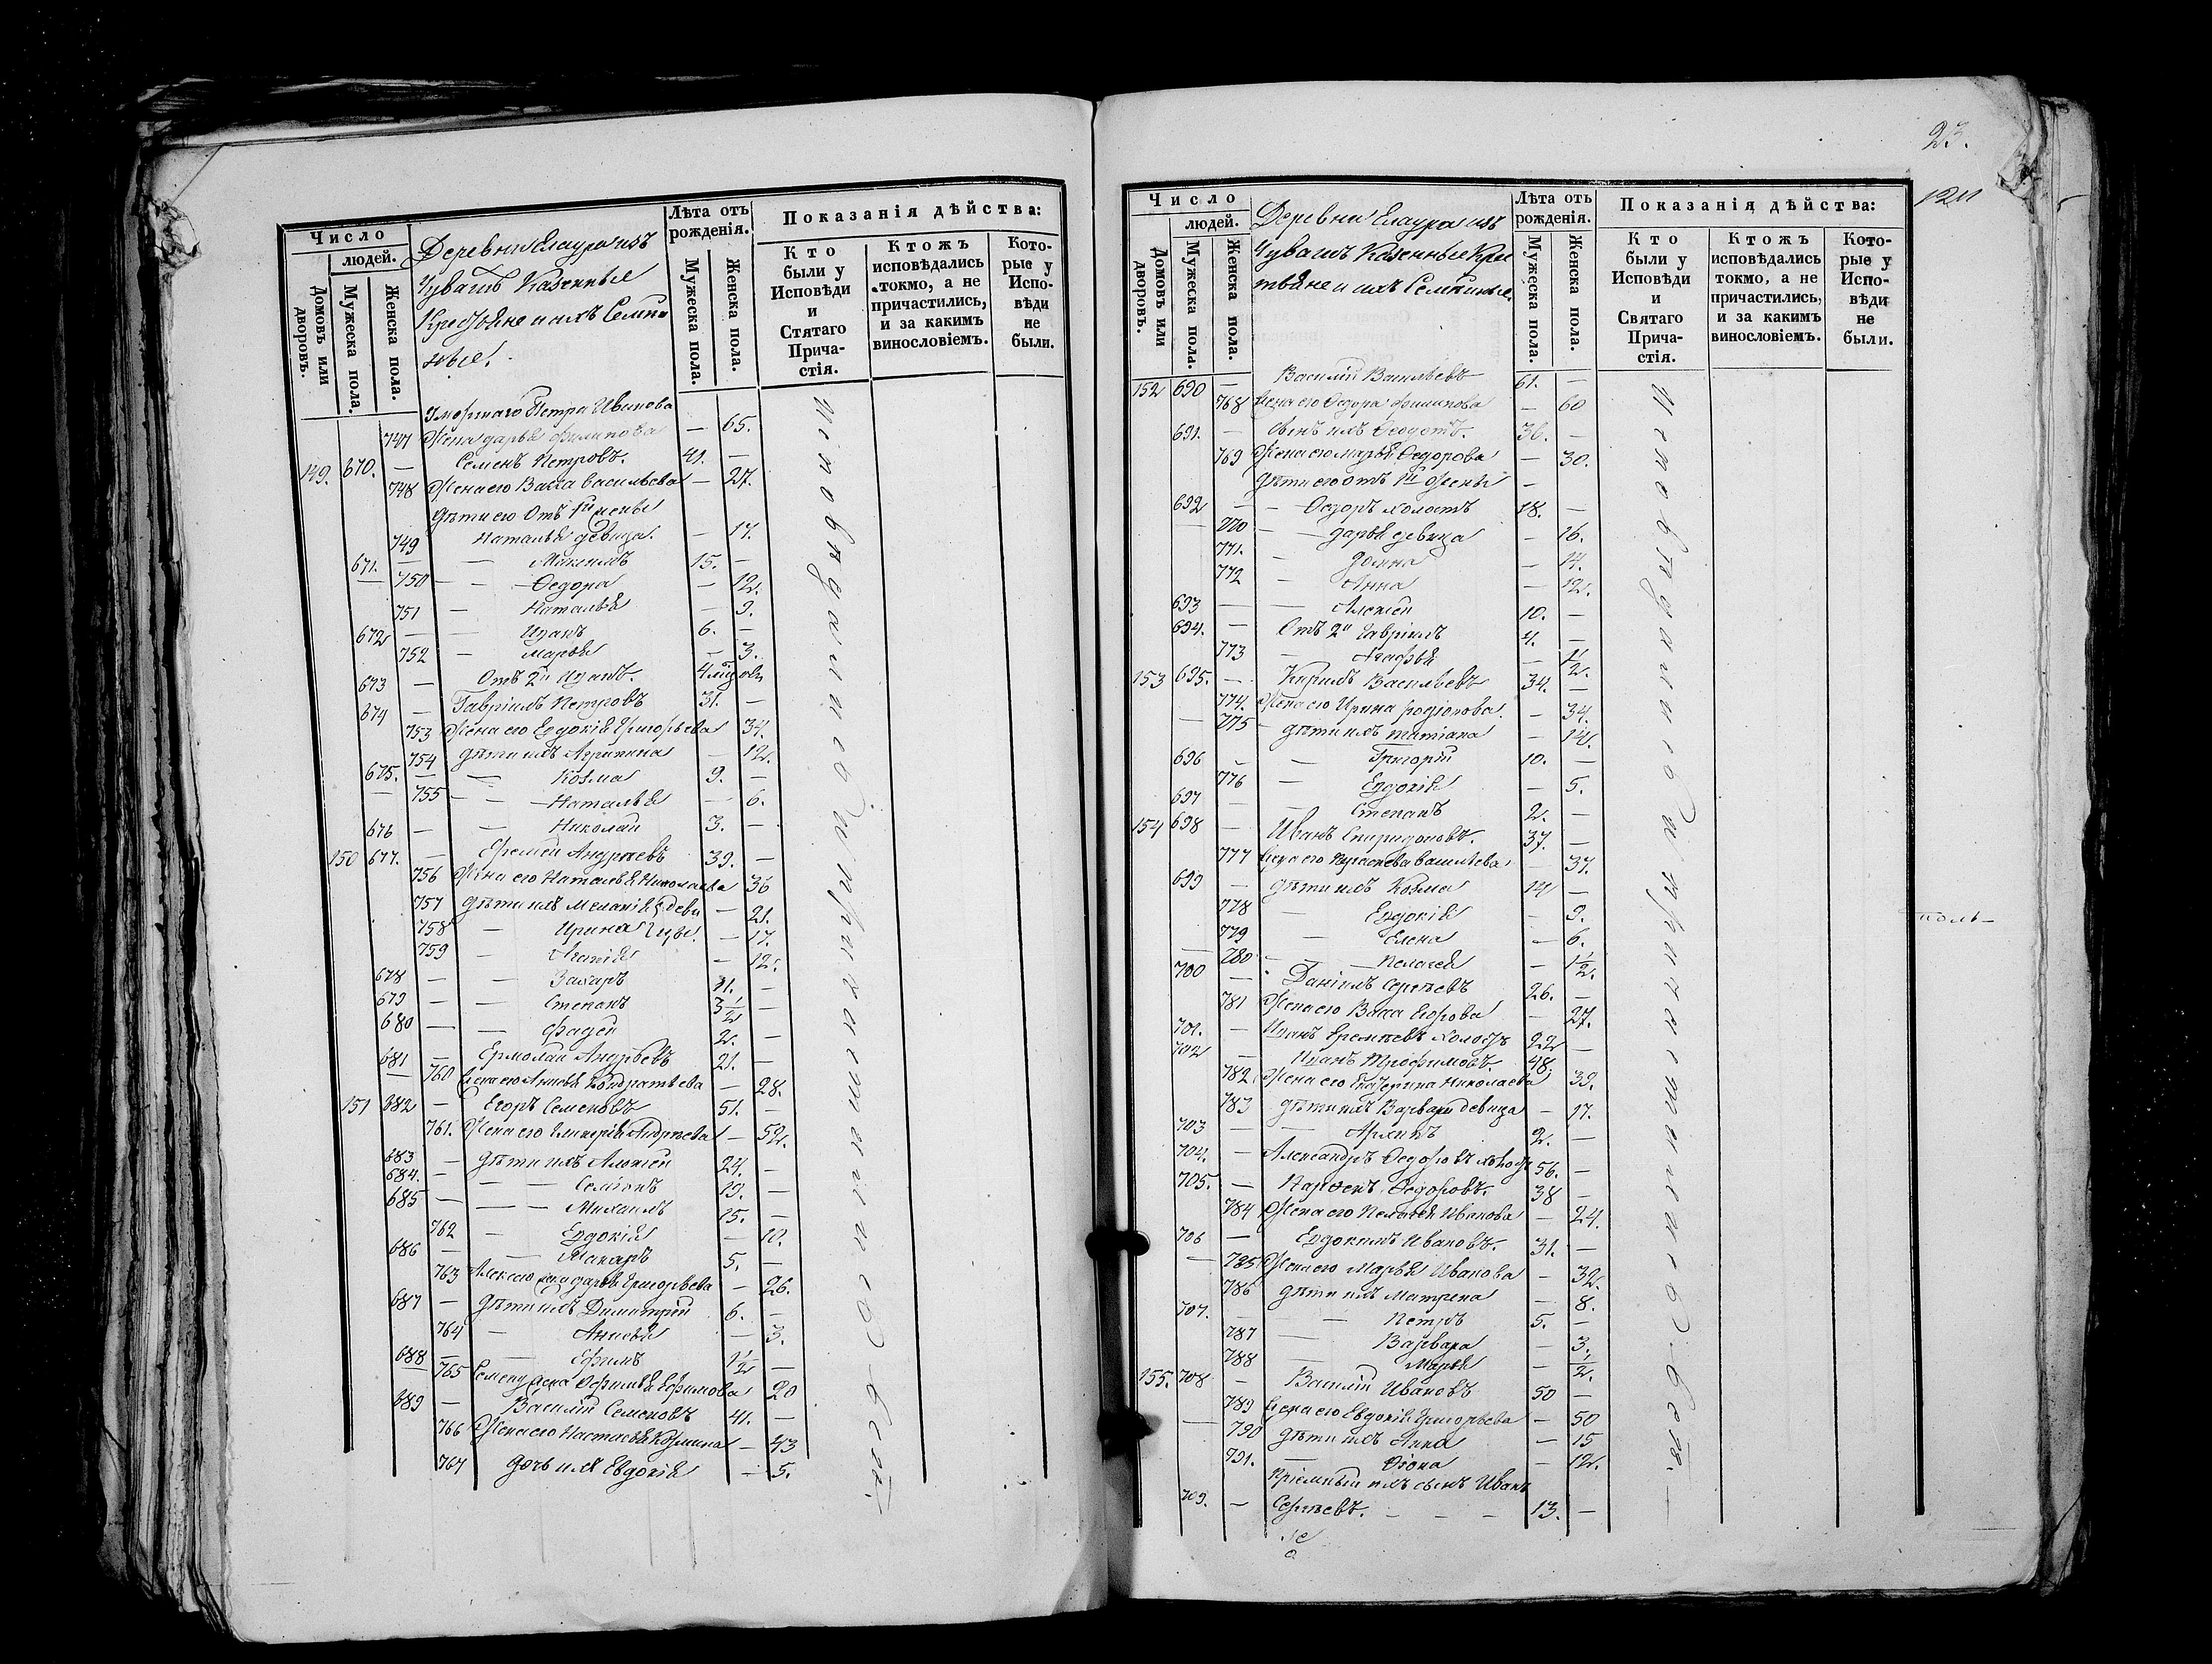 Число
людей.
Домовъ или дворовъ.
Мужеска пола.
Женска пола.
Деревни Елаура изъ
Чувашъ Казенные
Крестьяне и ихъ Семѣй
ные.
Лѣта отъ рожденія.
Мужеска пола.
Женска пола.
Показанія дѣйства:
Кто были у Исповѣди и Стятаго Прича-стія.
Ктожъ исповѣдались токмо, а не причастились, и за какимъ винословіемъ.
Кото-рые у Испо-вѣди не были.
Умершаго Петра Иванова
747 Жена дарья филипова — 65.
149. 670. — Семенъ Петровъ. 41. —
748 Жена его Васса васильева — 27.
дѣти его Отъ 1й жены
749 Наталья девица. — 17.
671. — Максимъ 15. —
750 — Ѳедора — 12.
751 — Наталья — 9.
672 — Иванъ 6. —
752 — Марѳа — 3.
673 — Отъ 2й Иванъ. 4 мѣсяцовъ
674 — Гавріилъ Петровъ 31. —
753 Жена его Евдокія Григорьева 34.
754 дѣти ихъ Агрипина — 12.
675. — Козма 9. —
755 — Наталья — 6.
676 — Николай 3. —
150 677. — Еремѣй Андреевъ 39. —
756 Жена его Наталья Николаева 36
757 дѣти ихъ Меланія деви — 21.
758 — Ирина цы. — 17.
759 — Агапія — 12.
678 — Захаръ 11. —
679 — Степанъ 3 1/2 —
680 — Фадей 2. —
681 — Ермолай Андреевъ 21. —
760 Жена его Анисья Кондратьева — 28.
151 682 — Егоръ Семеновъ 51. —
761. Жена его Гликерія Андреева — 52.
683 — дѣти ихъ Алексѣй 24. —
684. — Семіонъ 19. —
685 — Михаилъ 15. —
762 — Евдокія — 10.
686 — Макаръ 5. —
763 Алексѣя жена дарья Григорьева — 26.
687 — дѣти ихъ Димитрій 6. —
764 — Анисья — 3.
688 — Ефимъ 1 1/2 —
765 Семена жена Ефимія Ефимова 20
689 — Василій Семеновъ 41. —
766 Жена его Настасья Козмина — 43
767 дочь ихъ Евдокія — 5.
Исповѣдались и причастились Все
23.
Число
людей.
Домовъ или дворовъ.
Мужеска пола.
Женска пола.
Деревни Елаура изъ
Чувашъ Казенные Кре
стьяне и ихъ Семѣйные.
Лѣта отъ рожденія.
Мужеска пола.
Женска пола.
Показанія дѣйства:
Кто были у Исповѣди и Святаго Прича-стія.
Ктожъ исповѣдались токмо, а не причастились, и за какимъ винословіемъ.
Кото-рые у Испо-вѣди не были.
152 690 — Василій Васильевъ 61. —
768 Жена его Ѳедора Филипова — 60
691. — Сынъ ихъ Ѳедотъ. 36. —
769 Жена его марья Ѳедорова — 30.
дѣти его отъ 1й Жены —
692 — Ѳедоръ холостъ 18. —
770 — дарья девица — 16.
771. — Домна — 14.
772 — Анна — 12.
693 — Алексѣй 10. —
694. — Отъ 2й Гавріилъ 4. —
773 — Агафья — 1/2.
153 695. — Кирилъ Васильевъ 34. —
774. Жена его Ирина родіонова. — 34.
775 — дѣти ихъ татіана — 14.
696 — Григорій 10. —
776 — Евдокія — 5.
697 — Степанъ 2. —
154 698 — Иванъ Спиридоновъ. 37. —
777 Жена его Параскева васильева — 37.
699 — дѣти ихъ Козма 14 —
778 — Евдокія — 9.
779 — Елена — 6.
780 — Пелагея — 1 1/2.
700 — Даніилъ Сергѣевъ 26. —
781 Жена его Васса Егорова — 27.
701. — Иванъ Еремѣевъ холостъ 22 —
702 — Иванъ Трофимовъ. 48. —
782 Жена его Екатерина Николаева 39.
783 дѣти ихъ Варвара девица — 17.
703 — Архипъ 2. —
704. — Александръ Ѳедоровъ холостъ 56. —
705. — Парѳенъ Ѳедоровъ. 38 —
784 Жена его Пелагея Иванова — 24.
706 — Евдокимъ Ивановъ. 31. —
785 Жена его Марья Иванова — 32.
786 дѣти ихъ Матрена — 8.
707. — Петръ 5. —
787 — Варвара — 3.
788 — Марья — 1/2.
155. 708 — Василій Ивановъ 50 —
789 Жена его Евдокія Григорьева — 50
790 дѣти ихъ Анна — 15
791. — Ѳіона — 12.
Пріемный ихъ сынъ Иванъ
709. — Сергѣевъ. — — — 13. —
Исповѣдались и причастились Все.